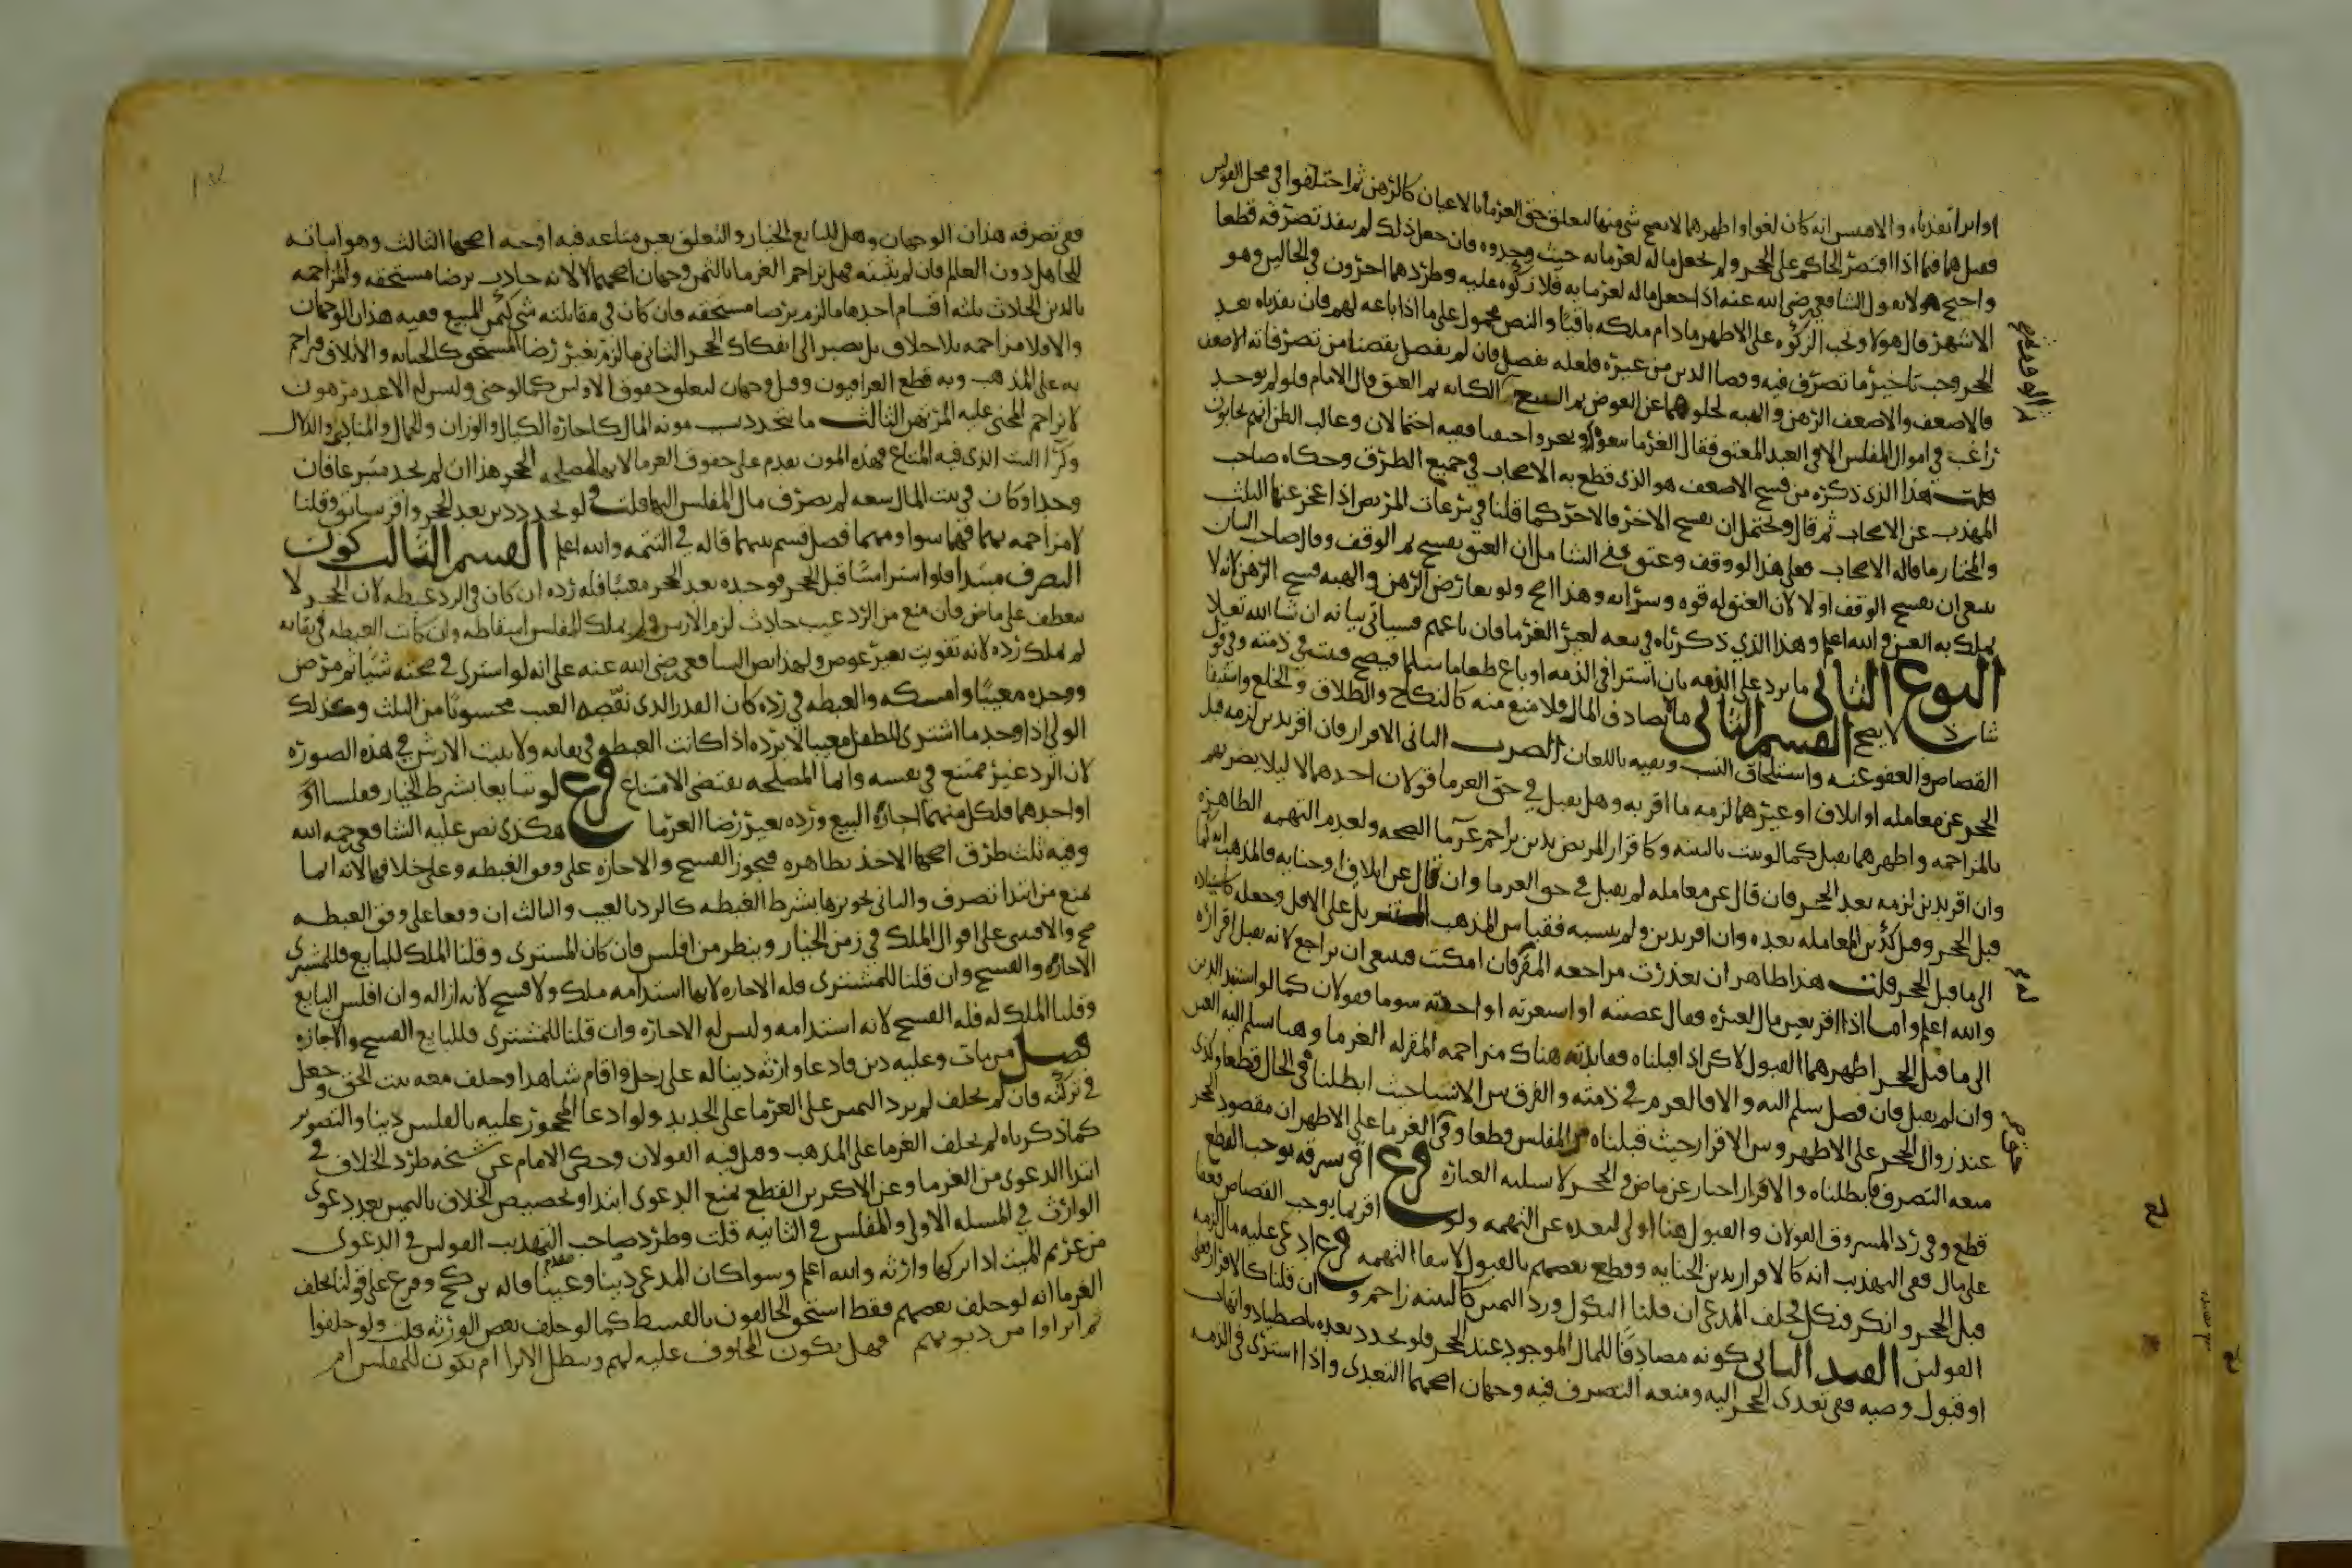 او ابرا نفذناه والا فبمس انه كان لغوا واظهرهما لا يصح شي منها لتعلق حق الغرما بالاعيان كالرهن ثم اختلفوا في محل القولين
فقيل هما فيما اذا اقتصر الحاكم على الحجر ولم يجعل ماله لغرمائه حيث وجدوه فان جعل ذلك لم ينفذ تصرفه قطعا
واحتج هولا بقول الشافعي رضي الله عنه اذا جعل ماله لغرمايه فلا زكوه عليه وطردهما اخرون في الحالين وهو
الاشهر قال هولا وتجب الزكوه على الاظهر مادام ملكه باقيا والنص محمول على ما اذا باعه لهم فان نفذناه بعد
الحجر وجب تاخير ما تصرف فيه وقضا الدين من غيره فلعله يفضل فان لم يفضل نقضنا من تصرفاته الاضعف
فالاضعف والاضعف الرهن والهبه لخلوهما عن العوض ثم البيع ثم الكتابه ثم العتق قال الامام فلو لم يوجد
راغب في اموال المفلس الا في العبد المعتق فقال الغرما بيعوه ففيه احتمالان وغالب الظن انهم يجابون
قلت هذا الذي ذكره من فسخ الاضعف هو الذي قطع به الاصحاب في جميع الطرق وحكاه صاحب
المهذب عن الاصحاب ثم قال ويحتمل ان يفسخ الاخر فالاخر كما قلنا في تبرعات المريض اذا عجز عنها الثلث
والمختار ما قاله الاصحاب فعلى هذا لو وقف وعتق ففي الشامل ان العتق يفسخ ثم الوقف وقال صاحب البيان
ينبغي ان يفسخ الوقف اولا لان العتق له قوه وسرايه وهذا اصح ولو تعارض الرهن والهبه فسخ الرهن لانه لا
يملك به العين والله اعلم وهذا الذي ذكرناه في بيعه لغير الغرما فان باعهم فسياتي بيانه ان شا الله تعلى
النوع الثاني ما يرد على الذمه بان اشترا في الذمه او باع طعاما سلما فيصح ويثبت في ذمته وفي قول
شاذ لا يصح القسم الثاني ما لا يصادف المال فلا منع منه كالنكاح والطلاق والخلع واستيفا
القصاص والعفو عنه واستلحاق النسب ونفيه باللعان الضرب الثاني الاقرار فان اقر بدين لزمه قبل
الحجر عن معامله او اتلاف او غيرهما لزمه ما اقر به وهل يقبل في حق الغرما قولان احدهما لا ليلا يضرهم
بالمزاحمه واظهرهما يقبل كما لو ثبت بالبينه وكاقرار المريض بدين يزاحم غرما الصحه ولعدم التهمه الظاهره
وان اقر بدين لزمه بعد الحجر فان قال عن معامله لم يقبل في حق الغرما وان قال عن اتلاف او جنايه فالمذهب انه كما
قبل الحجر وقيل كدين المعامله بعده وان اقر بدين ولم ينسبه فقياس المذهب التنزيل على الاقل وجعله كاسناده
الى ما قبل الحجر قلت هذا ظاهر ان تعذرت مراجعه المقر فان امكنت فينبغي ان يراجع لانه يقبل اقراره
والله اعلم واما اذا اقر بعين مال لغيره فقال غصبته او استعرته او اخذته سوما فقولان كما لو اسند الدين
الى ما قبل الحجر اظهرهما القبول لاكن اذا قبلناه ففايدته هناك مزاحمه المقر له الغرما وهنا يسلم اليه العين
وان لم يقبل فان فضل سلم اليه والا فالغرم في ذمته والفرق بين الانشا حيث ابطلناه في الحال قطعا وكذى
عند زوال الحجر على الاظهر وبين الاقرار حيث قبلناه من المفلس قطعا وفي الغرما على الاظهر ان مقصود الحجر
منعه التصرف فابطلناه والاقرار اخبار عن ماض والحجر لا يسلبه العباره فرع اقر بسرقه توجب القطع
قطع وفي رد المسروق القولان والقبول هنا اولى لبعده عن التهمه ولو اقر بما يوجب القصاص فعفا
على مال ففي التهذيب انه كالاقرار بدين الجنايه وقطع بعضهم بالقبول لانتفا التهمه فرع ادعي عليه مال لزمه
قبل الحجر وانكر فنكل فحلف المدعي ان قلنا النكول ورد اليمين كالبينه زاحم وان قلنا كالاقرار فعلى
القولين القيد الثاني كونه مصادفا للمال الموجود عند الحجر فلو تجدد بعده باصطياد واتهاب
او قبول وصيه ففي تعدى الحجر اليه ومنعه التصرف فيه وجهان اصحهما التعدى واذا اشترى في الذمه
ففي تصرفه هذان الوجهان وهل للبايع الخيار والتعلق بعين متاعه فيه اوجه اصحها الثالث وهو اثباته
للجاهل دون العالم فان لم نثبته فهل يزاحم الغرما بالثمن وجهان اصحهما لا لانه حادث برضا مستحقه والمزاحمه
بالدين الحادث ثلثه اقسام احدها ما لزم برضا مستحقه فان كان في مقابلته شي كثمن المبيع ففيه هذان الوجهان
والا فلا مزاحمه بلا خلاف بل يصبر الى انفكاك الحجر الثاني ما لزم بغير رضا المستحق كالجنايه والاتلاف فيزاحم
به على المذهب وبه قطع العراقيون وقيل وجهان لتعلق حقوق الاولين كما لو جنى وليس له الا عبد مرهون
لا يزاحم المجني عليه المرتهن الثالث ما يتجدد بسبب مونه المال كاجره الكيال والوزان والحمال والمنادي والدلال
وكرا البيت الذي فيه المتاع فهذه المون تقدم على حقوق الغرما لانها لمصلحه الحجر هذا ان لم نجد متبرعا فان
وجد او كان في بيت المال سعه لم يصرف مال المفلس اليها قلت فلو تجدد دين بعد الحجر واقر بسابق وقلنا
لا مزاحمه بهما فهما سوا ومهما فضل قسم بينهما قاله في التتمه والله اعلم القسم الثالث كون
التصرف مبتدا فلو اشترا شيا قبل الحجر فوجده بعد الحجر معيبا فله رده ان كان في الرد غبطه لان الحجر لا
ينعطف على ماض فان منع من الرد عيب حادث لزم الارش ولم يملك المفلس اسقاطه وان كانت الغبطه في بقائه
لم يملك رده لانه تفويت بغير عوض ولهذا نص الشافعي رضي الله عنه على انه لو اشترى في صحته شيا ثم مرض
ووجده معيبا وامسكه والغبطه في رده كان القدر الذي نقصه العيب محسوبا من الثلث وكذلك
الولي اذا وجد ما اشترى للطفل معيبا لا يرده اذا كانت الغبطه في بقايه ولا يثبت الارش في هذه الصوره
لان الرد غير ممتنع في نفسه وانما المصلحه تقتضي الامتناع فرع لو تبايعا بشرط الخيار ففلسا او
او احدهما فلكل منهما اجازه البيع ورده بغير رضا الغرما هكذى نص عليه الشافعي رحمه الله
وفيه ثلث طرق اصحها الاخذ بظاهره فيجوز الفسخ والاجازه على وفق الغبطه وعلى خلافها لانه انما
يمنع من ابتدا تصرف والثاني تجويزها بشرط الغبطه كالرد بالعيب والثالث ان وقعا على وفق الغبطه
صح والا فبنى على اقوال الملك في زمن الخيار وينظر من افلس فان كان المشترى وقلنا الملك للبايع فللمشترى
الاجازه والفسخ وان قلنا للمشترى فله الاجازه لانها استدامه ملك ولا فسخ لانه ازاله وان افلس البايع
وقلنا الملك له فله الفسخ لانه استدامه وليس له الاجازه وان قلنا للمشترى فللبايع الفسخ والاجازه
فصل من مات وعليه دين فادعا وارثه دينا له على رجل واقام شاهدا وحلف معه ثبت الحق وجعل
في تركته فان لم يحلف لم يرد اليمين على الغرما على الجديد ولو ادعا المحجور عليه بالفلس دينا والتصوير
كما ذكرناه لم يحلف الغرما على المذهب وقيل فيه القولان وحكى الامام عن شيخه طرد الخلاف في
ابتدا الدعوى من الغرما وعن الاكثرين القطع بمنع الدعوى ابتدا وتخصيص الخلاف باليمين بعد دعوى
الوارث في المسله الاولى والمفلس في الثانيه قلت وطرد صاحب التهذيب القولين في الدعوى
من غريم الميت اذا تركها وارثه والله اعلم وسوا كان المدعى دينا وعينا قاله بن كج وفرع على قولنا يحلف
الغرما انه لو حلف بعضهم فقط استحق الحالفون بالقسط كما لو حلف بعض الورثه قلت ولو حلفوا
ثم ابراوا من ديونهم فهل يكون المحلوف عليه لهم ويبطل الابرا ام يكون للمفلس ام